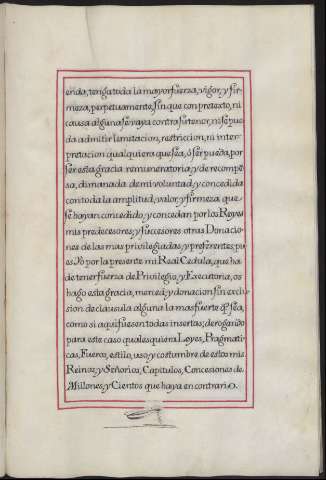 endo, tenga toda la mayor fuerza, vigor, y fir-
meza, perpetuamente, sin que con pretexto, ni
causa alguna se vaya contra su tenor, ni se pue
da admitir limitacion, restriccion, ni inter-
pretacion qualquiera que sea, ó ser pueda, por
ser esta gracia remuneratoria, y de recompe
sa, dimanada de mi voluntad, y concedida
con toda la amplitud, valor, y firmeza que
se hayan concedido, y concedan por los Reyes
mis predecesores, y successores otras Donacio
nes de las mas privilegiadas, y preferentes; pu
es Yo por la presente mi Real Cedula, que ha
de tener fuerza de Privilegio, y Executoria, os
hago esta gracia, merced, y donacion sin exclu
sion de clausula alguna la mas fuerte q.e sea,
como si aqui fuesen todas insertas; derogando
para este caso qualesquiera Leyes, Pragmati
cas, Fueros, estilo, uso, y costumbre de estos mis
Reinos, y Señorios, Capitulos, Concesiones de
Millones, y Cientos que haya en contrario.